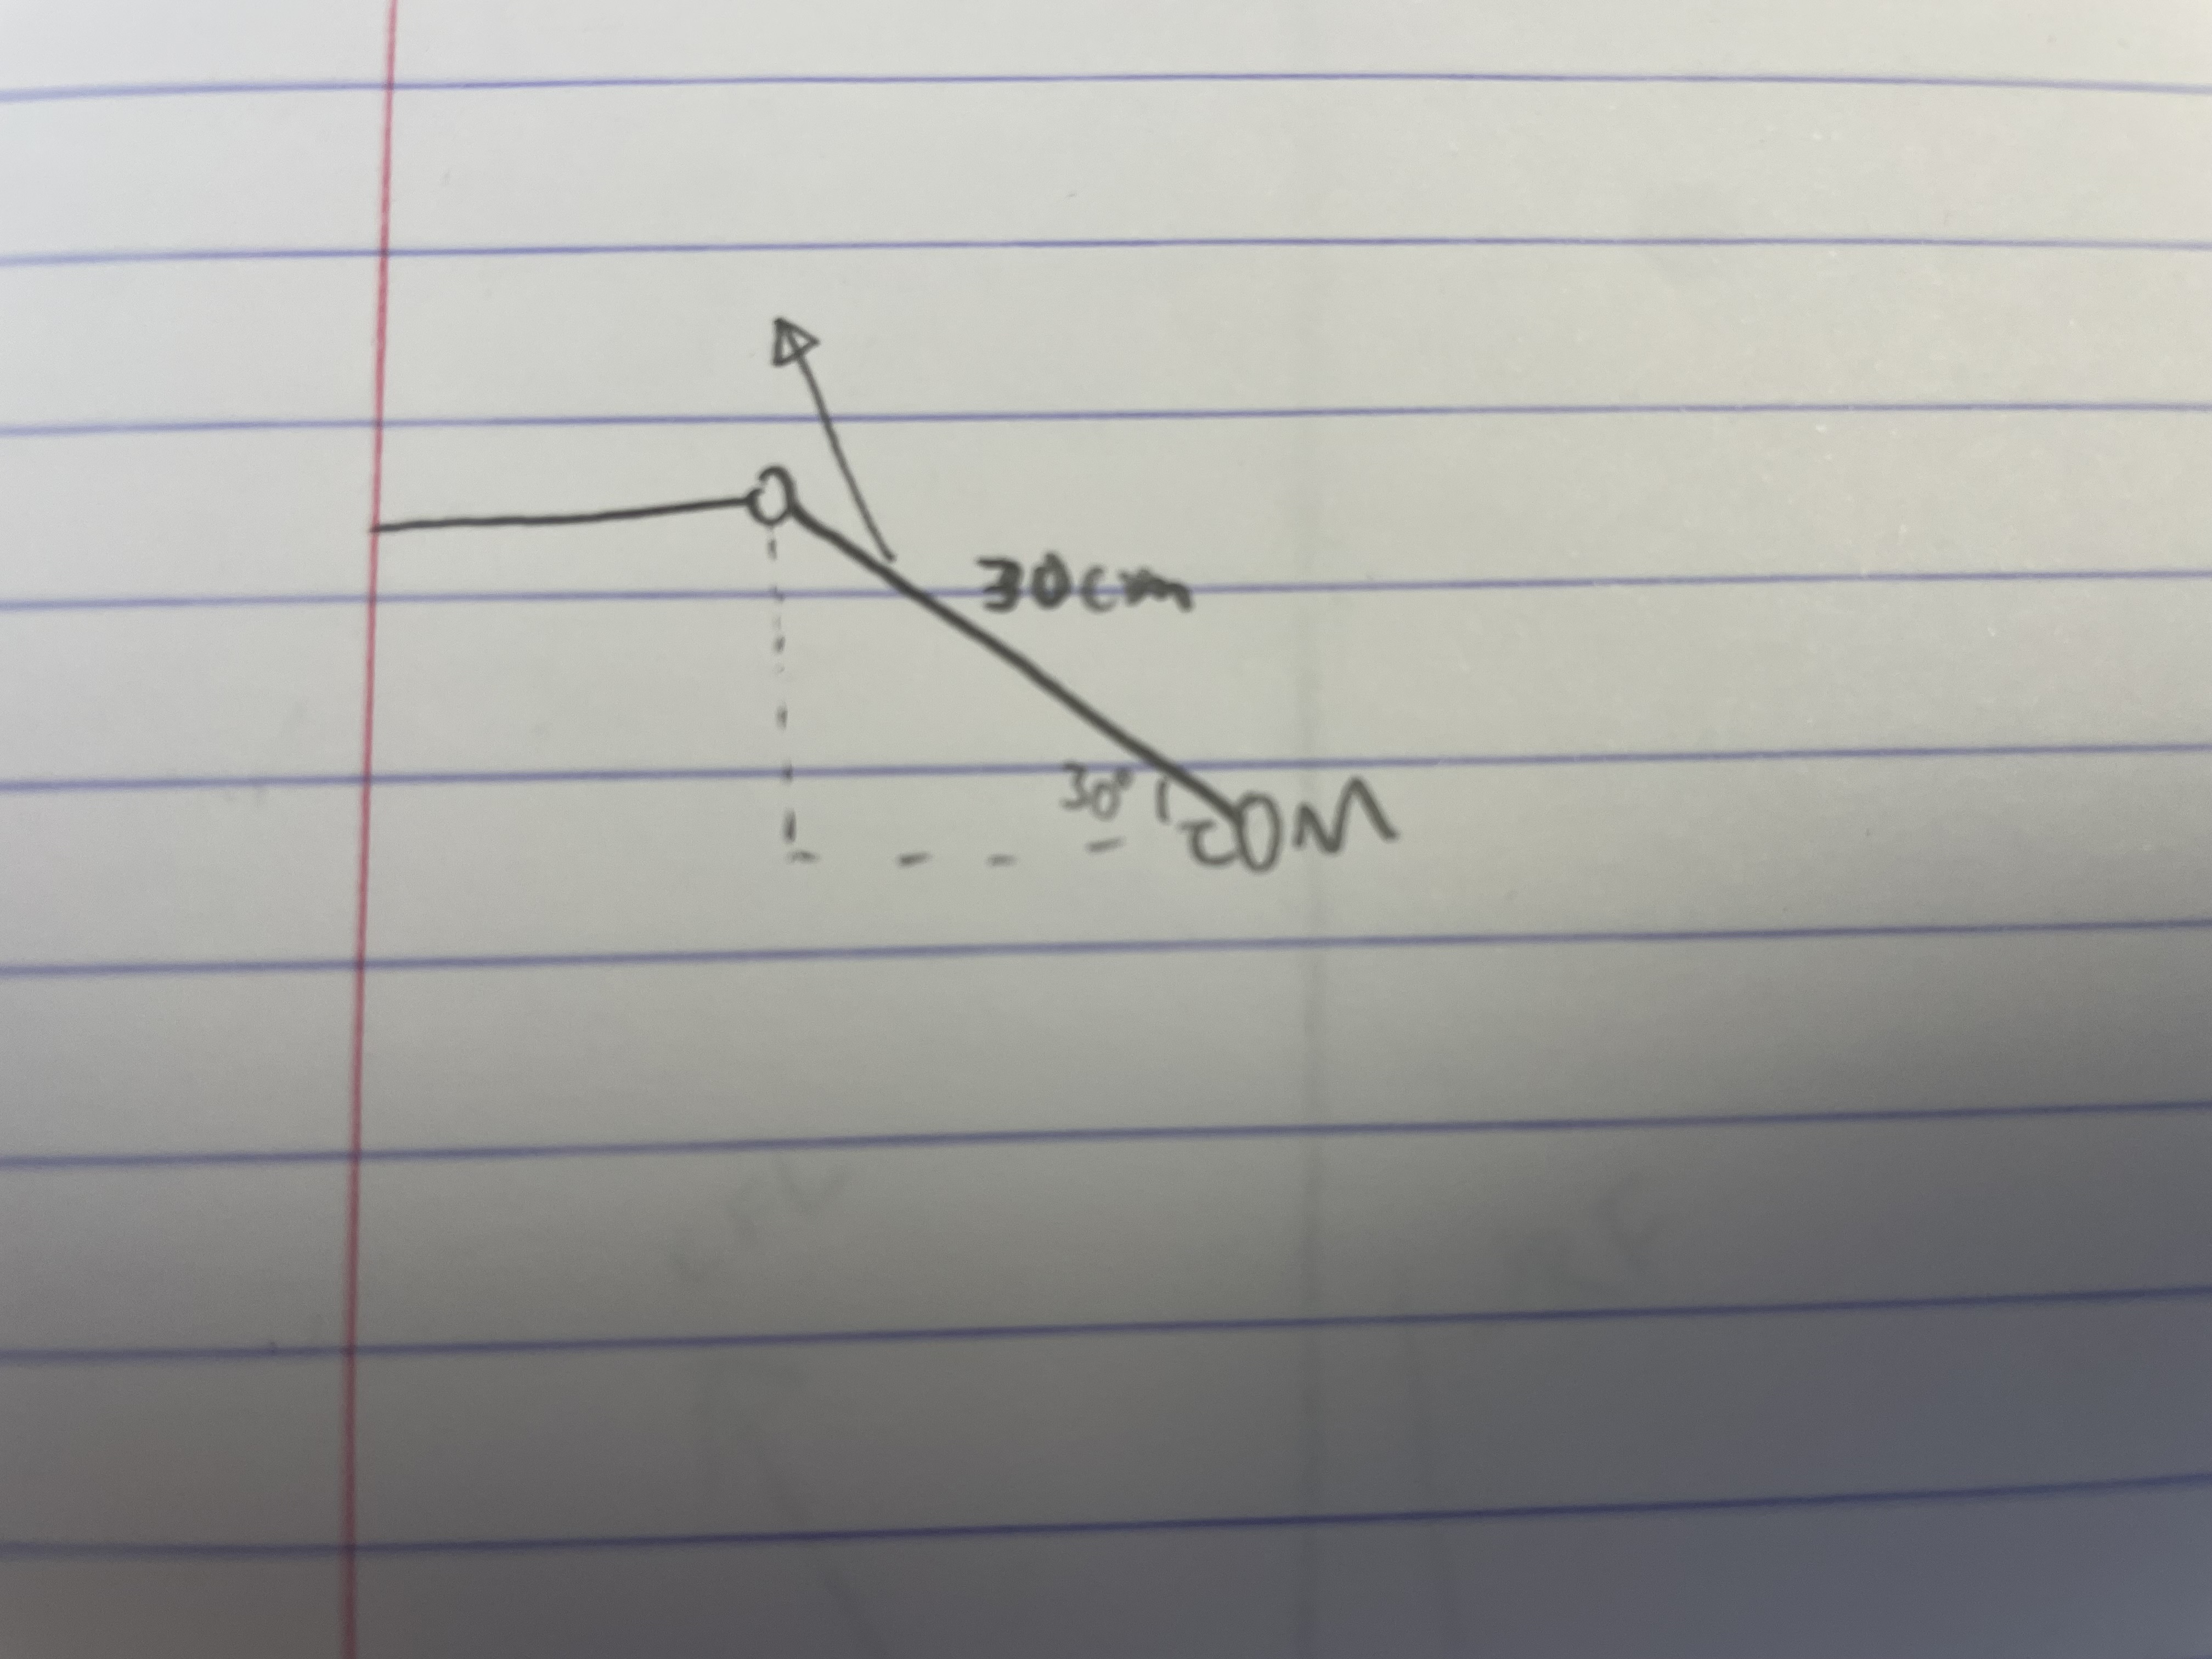 30cm
30°
COM